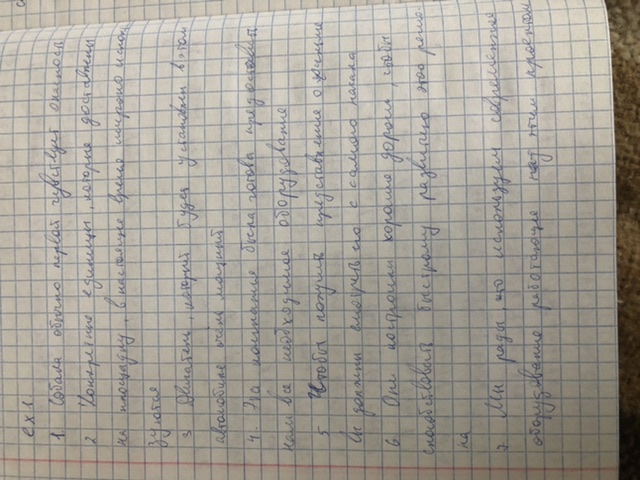 ex 1.
1. Собака обычно первой чувствует опасность
2 Конкретные единицы, которые доставлены
на площадку, в настоящее время широко исполь
зуются
3 Двигатель, который будет установлен в этом
автомобиле очень мощный
4. Эта компания была готова предоставить
нам все необходимое оборудование
5 Чтобы получить представление о лекции
Вы должны смотреть его с самого начала
6. Они построили хорошие дороги, чтобы
способствовать быстрому развитию этого регио
на
7 Мы рады, что используем современное
оборудование работающие над этим проектом